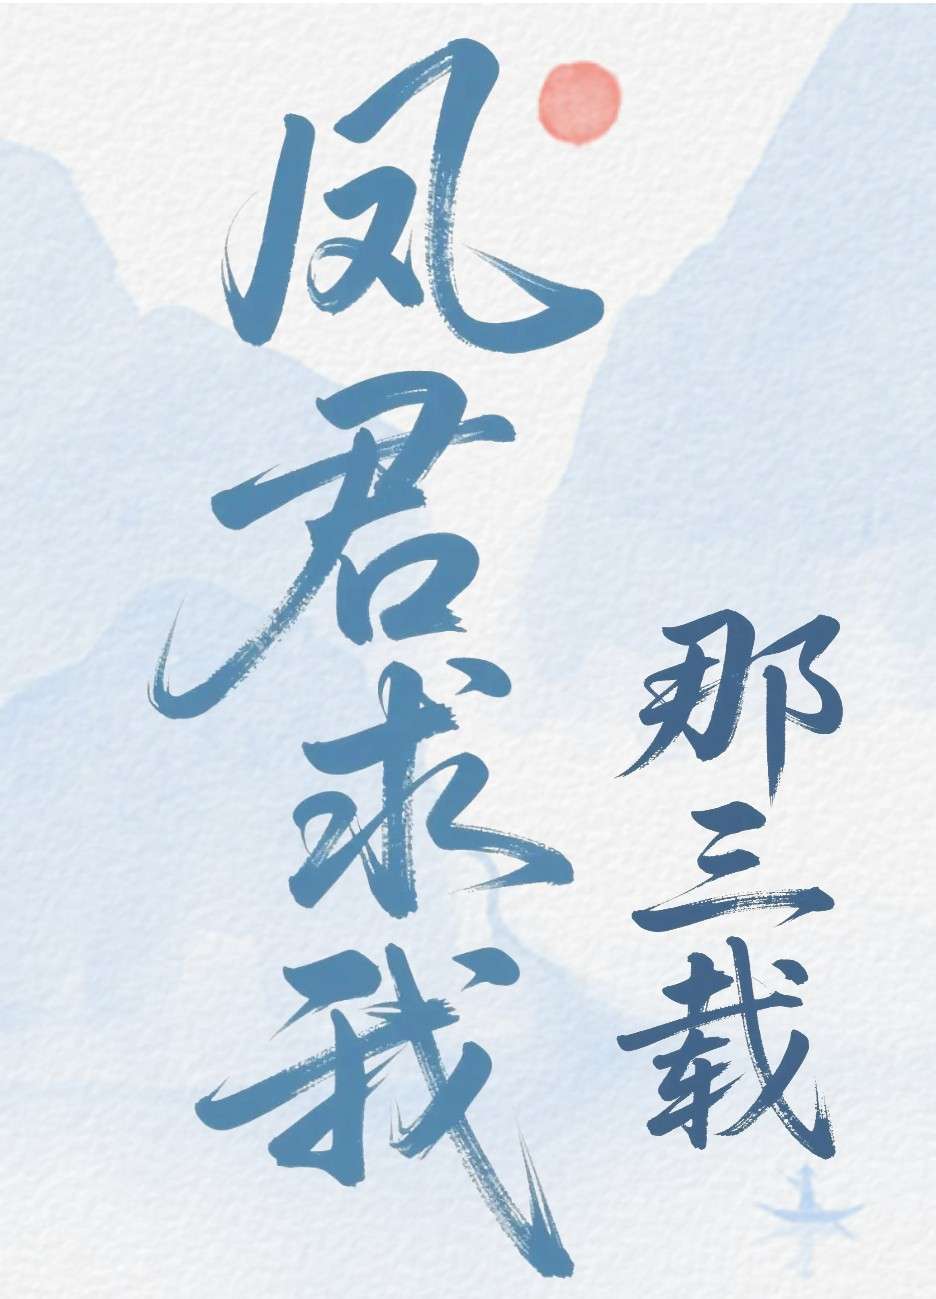 凤君求我
那三载